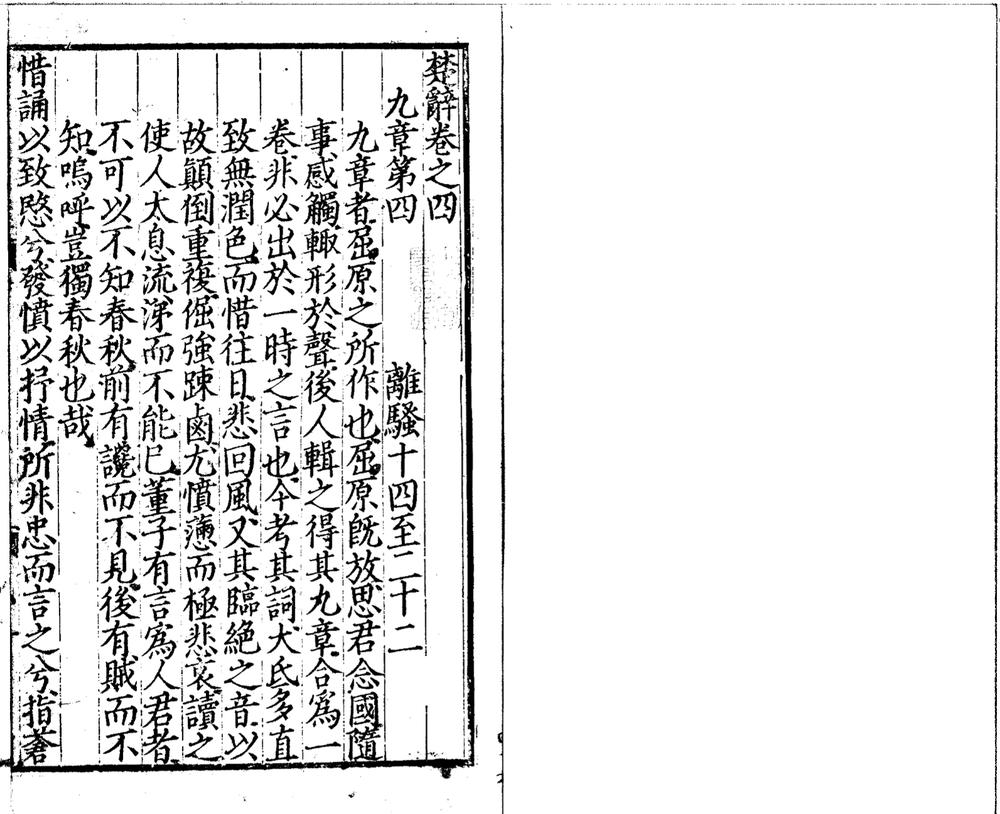 楚辭卷之四
九章第四　離騷十四至二十二
九章者屈原之所作也屈原旣放思君念國隨
事感觸輙形於聲後人輯之得其九章合爲一
卷非必出於一時之言也今考其詞大氐多直
致無潤色而惜往日悲回風又其臨絶之音以
故顚倒重複倔強踈鹵尤憤懣而極悲哀讀之
使人太息流涕而不能已董子有言爲人君者
不可以不知春秋前有讒而不見後有賊而不
知嗚呼豈獨春秋也哉
惜誦以致愍兮發憤以抒情所非忠而言之兮指蒼